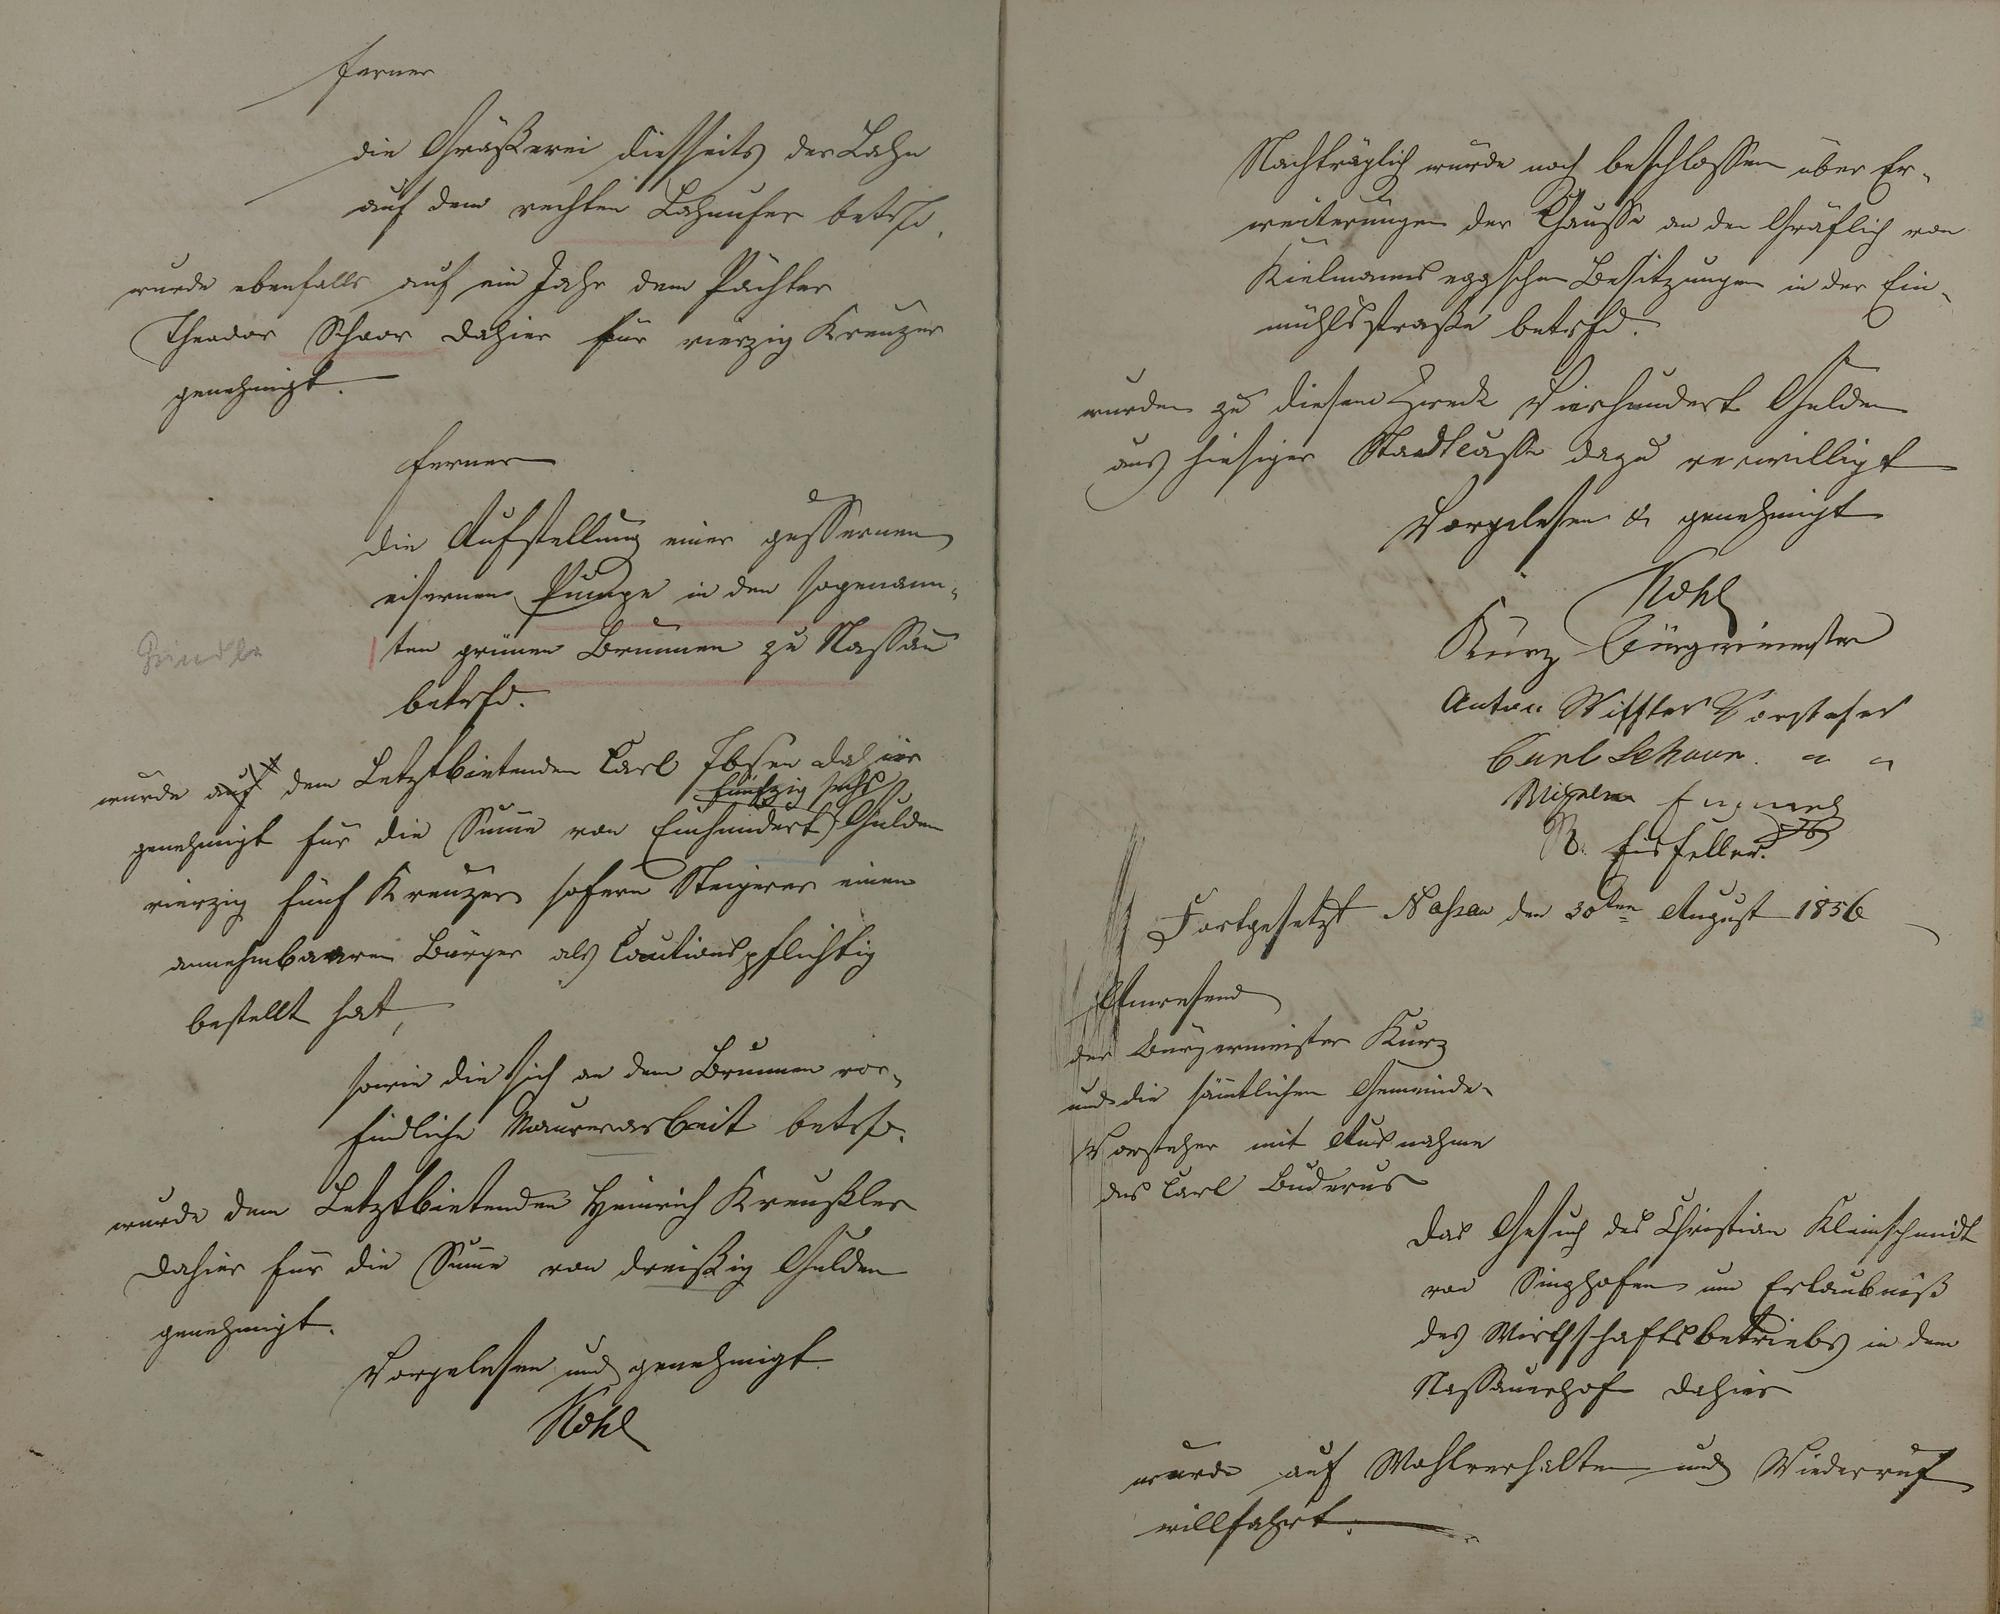 ferner
die Gräserei diesseits der Lahn
auf dem rechten Lahnufer betrfd.
wurde ebenfalls auf ein Jahr dem Pächter
Theodor Schaar dahier für vierzig Kreuzer
genehmigt.
ferner
die Aufstellung einer gussernen
eisernen Pumpe in den sogenann-
ten grünen Brunnen zu Nassau
betrfd.
wurde auf dem Letztbietenden Carl Ibsen dahier
fünfzig sechs
genehmigt für die Summe von Einhundert Gulden
vierzig fünf Kreuzer sofern Steigerer einen
annehmbaaren Bürger als Cautionspflichtig
bestellt hat,
sowie die sich an dem Brunnen vor-
findliche Maurerarbeit betrfd.
wurde dem Letztbietenden Heinrich Kreußler
dahier für die Summe von dreißig Gulden
genehmigt.
Vorgelesen und genehmigt
Kohl
Nachträglich wurde noch beschlossen über Er-
weiterungen der Chaussee an den Gräflich von
Kielmannseggschen Besitzungen in der Ein-
mühlsstraße betrfd.
wurden zu diesem Zweck Vierhundert Gulden
aus hiesiger Stadtcasse dazu verwilligt
Vorgelesen & genehmigt
Kohl
Kurz Bürgermeister
Anton Vorsteher
Carl Schaar " "
Wilhelm
Eisfeller
Fortgesetzt Nassau den 30ten August 1856
Anwesend
der Bürgermeister Kurz
und die sämtlichen Gemeinde-
Vorsteher mit Ausnahme
des Carl Buderus
Das Gesuch des Christian Kleinschmidt
von Singhofen um Erlaubniß
des Wirthschaftsbetriebs in dem
Nassauerhof dahier
wurde auf Wohlverhalten und Wiederruf
willfahrt.